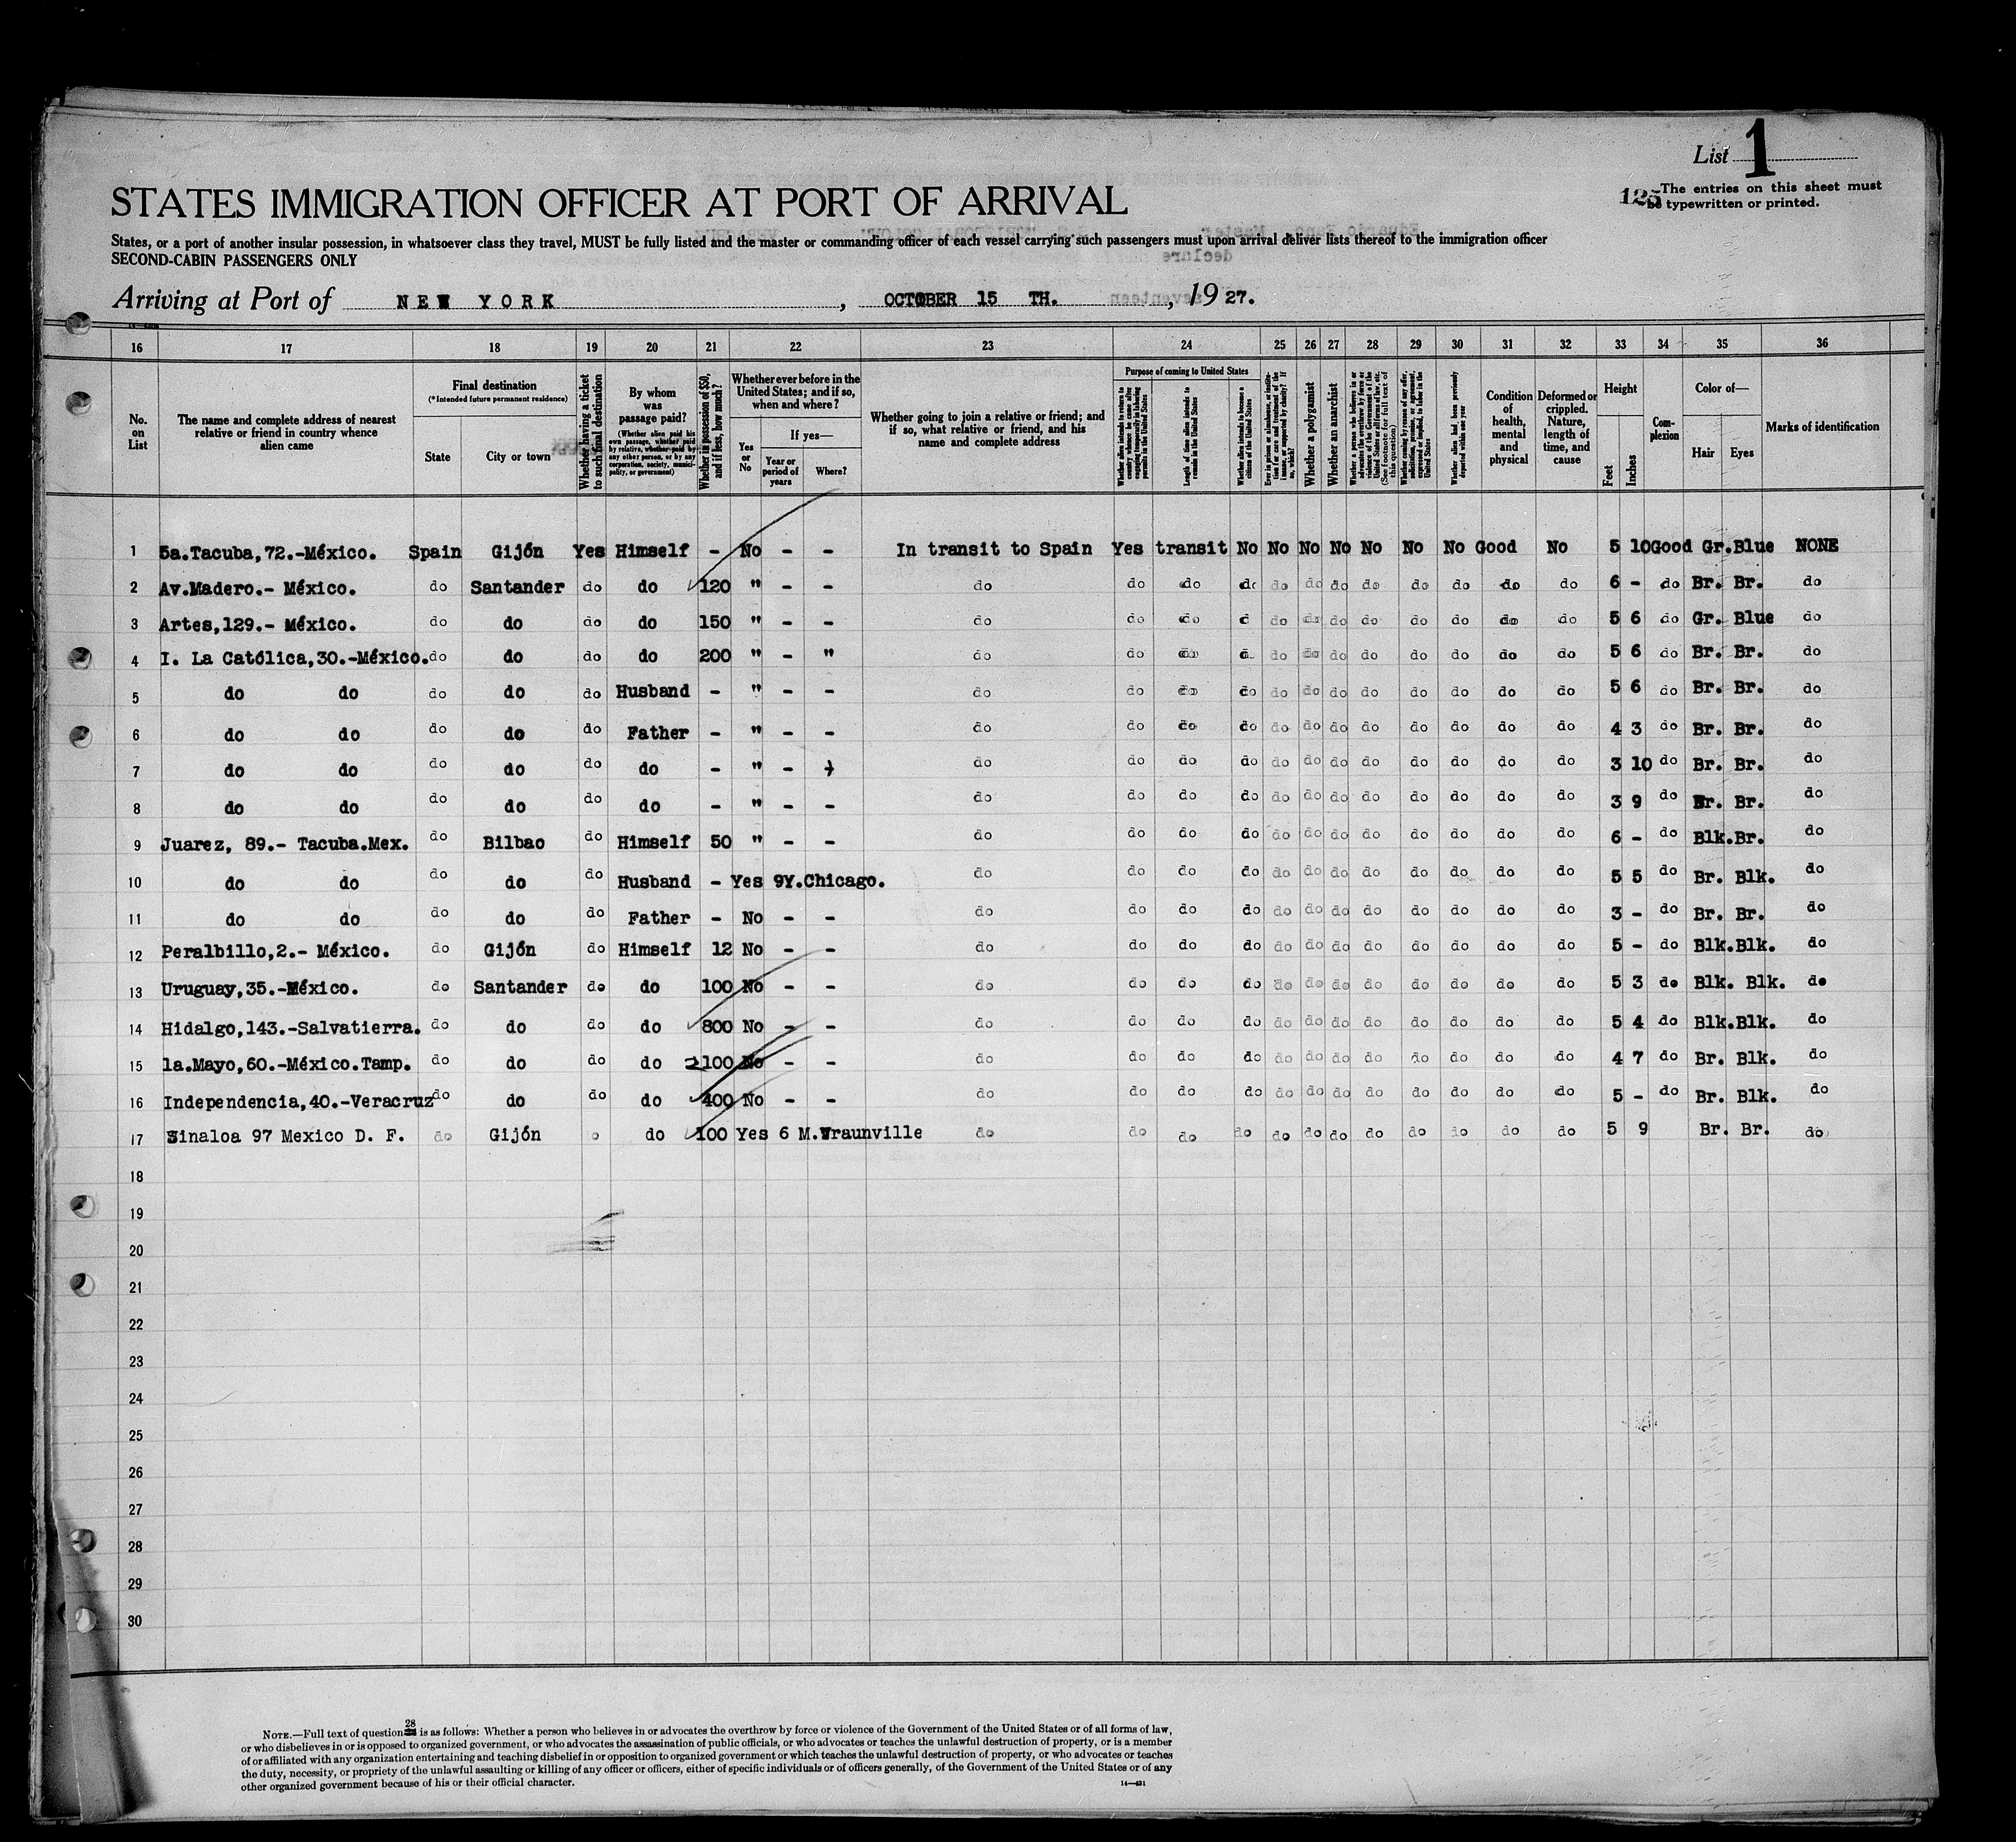 List 1
125 The entries on this sheet must
be typewritten or printed.
STATES IMMIGRATION OFFICER AT PORT OF ARRIVAL
States, or a port of another insular possession, in whatsoever class they travel, MUST be fully listed and the master or commanding officer of each vessel carrying such passengers must upon arrival deliver lists thereof to the immigration officer
SECOND-CABIN PASSENGERS ONLY
Arriving at Port of NEW YORK, OCTOBER 15 TH., 1927.
16 17 18 19 20 21 22 23 24 25 26 27 28 29 30 31 32 33 34 35 36
No. on List
The name and complete address of nearest relative or friend in country whence alien came
Final destination
(*Intended future permanent residence)
State
City or town
Whether having a ticket to such final destination
By whom was passage paid?
(Whether alien paid his own passage, whether paid by relative, whether paid by any other person, or by any corporation, society, municipality, or government)
Whether in possession of $50, and if less, how much?
Whether ever before in the United States; and if so, when and where?
Yes or No
If yes—
Year or period of years
Where?
Whether going to join a relative or friend; and if so, what relative or friend, and his name and complete address
Purpose of coming to United States
Whether alien intends to return to country whence he came after engaging temporarily in laboring pursuits in the United States
Length of time alien intends to remain in the United States
Whether alien intends to become a citizen of the United States
Whether a polygamist
Whether an anarchist
Whether alien had been previously deported within one year
Condition of health, mental and physical
Deformed or crippled. Nature, length of time, and cause
Height
Feet
Inches
Complexion
Color of—
Hair
Eyes
Marks of identification
1 5a.Tacuba,72.-México. Spain Gijón Yes Himself - No - - In transit to Spain Yes transit No No No No No No No Good No 5 10 Good Gr. Blue NONE
2 Av.Madero.- México. do Santander do do 120 " - - do do do do do do do do do do do do 6 - do Br. Br. do
3 Artes,129.- México. do do do do 150 " - - do do do d do do do do do do do do 5 6 do Gr. Blue do
4 I. La Católica,30.-México. do do do do 200 " - " do do do d. do do do do do do do do 5 6 do Br. Br. do
5 do do do do do Husband - " - - do do do do do do do do do do do do 5 6 do Br. Br. do
6 do do do do do Father - " - - do do do do do do do do do do do do 4 3 do Br. Br. do
7 do do do do do do - " - - do do do do do do do do do do do do 3 10 do Br. Br. do
8 do do do do do do - " - - do do do do do do do do do do do do 3 9 do Br. Br. do
9 Juarez, 89.- Tacuba.Mex. do Bilbao do Himself 50 " - - do do do do do do do do do do do do 6 - do Blk. Br. do
10 do do do do do Husband - Yes 9Y. Chicago. do do do do do do do do do do do do 5 5 do Br. Blk. do
11 do do do do do Father - No - - do do do do do do do do do do do do 3 - do Br. Br. do
12 Peralbillo,2.- México. do Gijón do Himself 12 No - - do do do do do do do do do do do do 5 - do Blk. Blk. do
13 Uruguay,35.-México. do Santander do do 100 No - - do do do do do do do do do do do do 5 3 do Blk. Blk. do
14 Hidalgo,143.-Salvatierra. do do do do 800 No - - do do do do do do do do do do do do 5 4 do Blk. Blk. do
15 1a.Mayo,60.-México.Tamp. do do do do 100 No - - do do do do do do do do do do do do 4 7 do Br. Blk. do
16 Independencia,40.-Veracruz do do do do 400 No - - do do do do do do do do do do do do 5 - do Br. Blk. do
17 Sinaloa 97 Mexico D. F. do Gijón o do 100 Yes 6 M. do do do do do do do do do do do do 5 9 Br. Br. do
18
19
20
21
22
23
24
25
26
27
28
29
30
28
NOTE.—Full text of question is as follows: Whether a person who believes in or advocates the overthrow by force or violence of the Government of the United States or of all forms of law,
or who disbelieves in or is opposed to organized government, or who advocates the assassination of public officials, or who advocates or teaches the unlawful destruction of property, or is a member
of or affiliated with any organization entertaining and teaching disbelief in or opposition to organized government or which teaches the unlawful destruction of property, or who advocates or teaches
the duty, necessity, or propriety of the unlawful assaulting or killing of any officer or officers, either of specific individuals or of officers generally, of the Government of the United States or of any
other organized government because of his or their official character.
14—431